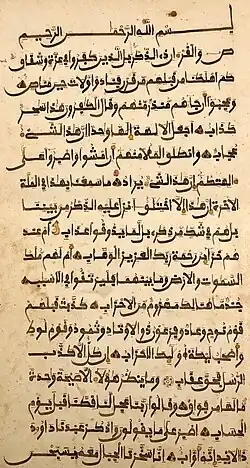 بسم الله الرحمن الرحيم
ص والقرءان ذي الذكر بل الذين كفروا في عزة وشقاق
كم أهلكنا من قبلهم من قرن فنادوا ولات حين مناص
وعجبوا أن جاءهم منذر منهم وقال الكفرون هذا سحر
كذاب أجعل الألهة إلها وحدا إن هذا لشيء
عجاب وانطلق الملأ منهم أن امشوا واصبروا على
ءالهتكم إن هذا لشيء يراد ما سمعنا بهذا في الملة
الأخرة إن هذا إلا اختلق أءنزل عليه الذكر من بيننا
بل هم في شك من ذكري بل لما يذوقوا عذاب أم عند
هم خزائن رحمة ربك العزيز الوهاب أم لهم ملك
السموت والأرض وما بينهما فليرتقوا في الأسبب
جند ما هنالك مهزوم من الأحزاب كذبت قبلهم
قوم نوح وعاد وفرعون ذو الأوتاد وثمود وقوم لوط
وأصحب ليكة أولئك الأحزاب إن كل إلا كذب
الرسل فحق عقاب وما ينظر هؤلاء إلا صيحة وحدة
ما لها من فواق وقالوا ربنا عجل لنا قطنا قبل يوم
الحساب اصبر على ما يقولون واذكر عبدنا داود
ذا الأيد إنه أواب إنا سخرنا الجبال معه يسبحن